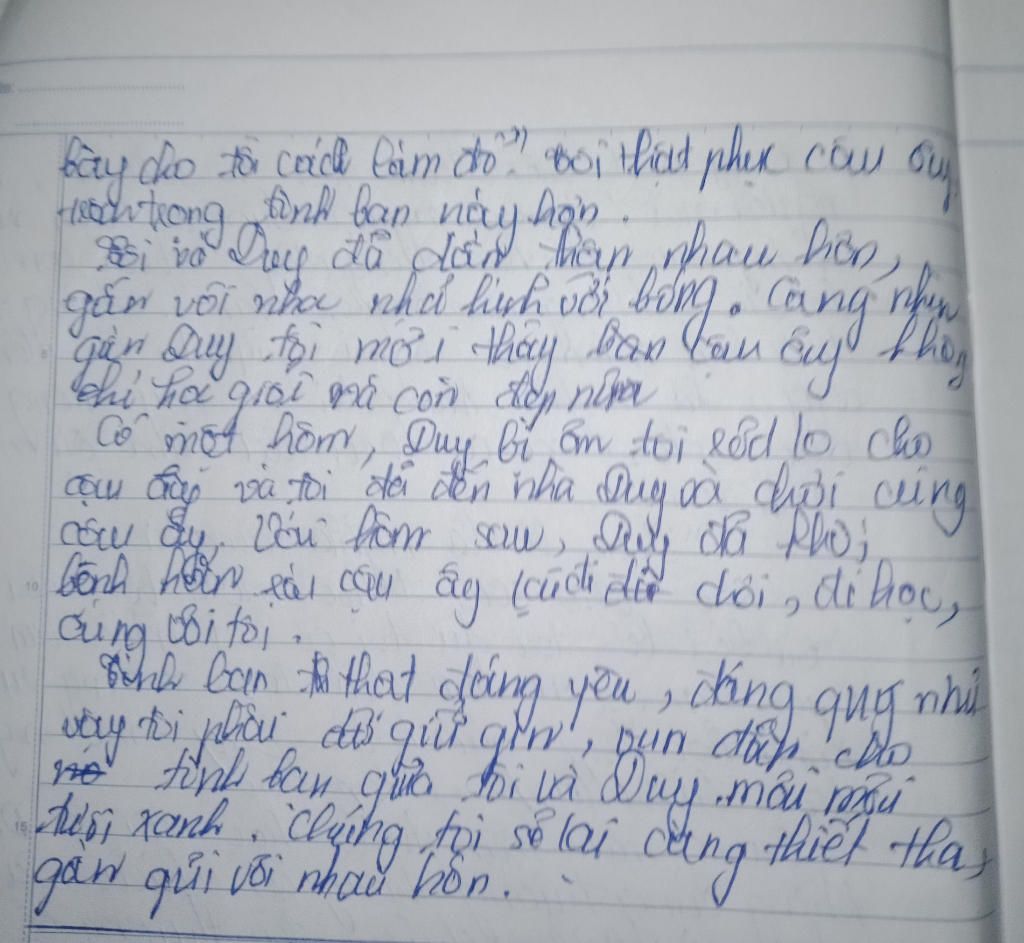 bày cho tôi cách làm đó". Tôi thật phục cậu ấy,
trân trọng tình bạn này hơn.
Tôi và Duy đã dần thân nhau hơn,
gắn với nhau như hình với bóng. Càng nhìn
gần Duy tôi mới thấy bạn cậu ấy không
chỉ học giỏi mà còn đẹp nữa
Có một hôm, Duy bị ốm tôi rất lo cho
cậu ấy và tôi đã đến nhà Duy và chơi cùng
cậu ấy. Vài hôm sau, Duy đã khỏi
bệnh hẳn rồi cậu ấy lại đi chơi, đi học,
cùng với tôi.
Tình bạn thật đáng yêu, đáng quý như
vậy tôi phải giữ gìn, vun đắp cho
tình bạn giữa tôi và Duy mãi mãi
tươi xanh. Chúng tôi sẽ lại càng thiết tha,
gần gũi với nhau hơn.